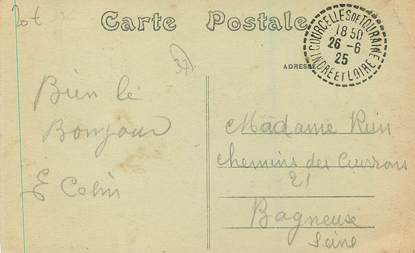 20t
Carte Postale
COURCELLES DE TOURAINE
18 50
26-6
25
INDRE ET LOIRE
37
ADRESSE
Bien le
Bonjour
E Colin
Madame
chemins des
21
Bagneux
Seine